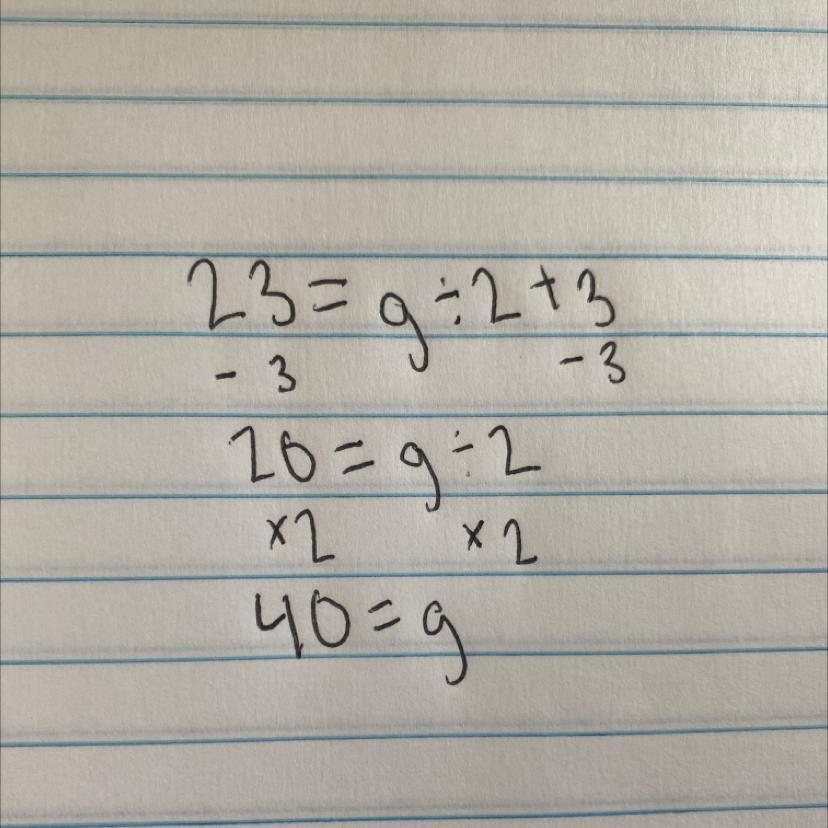 23 = g ÷ 2 + 3
- 3 - 3
20 = g ÷ 2
×2 ×2
40 = g